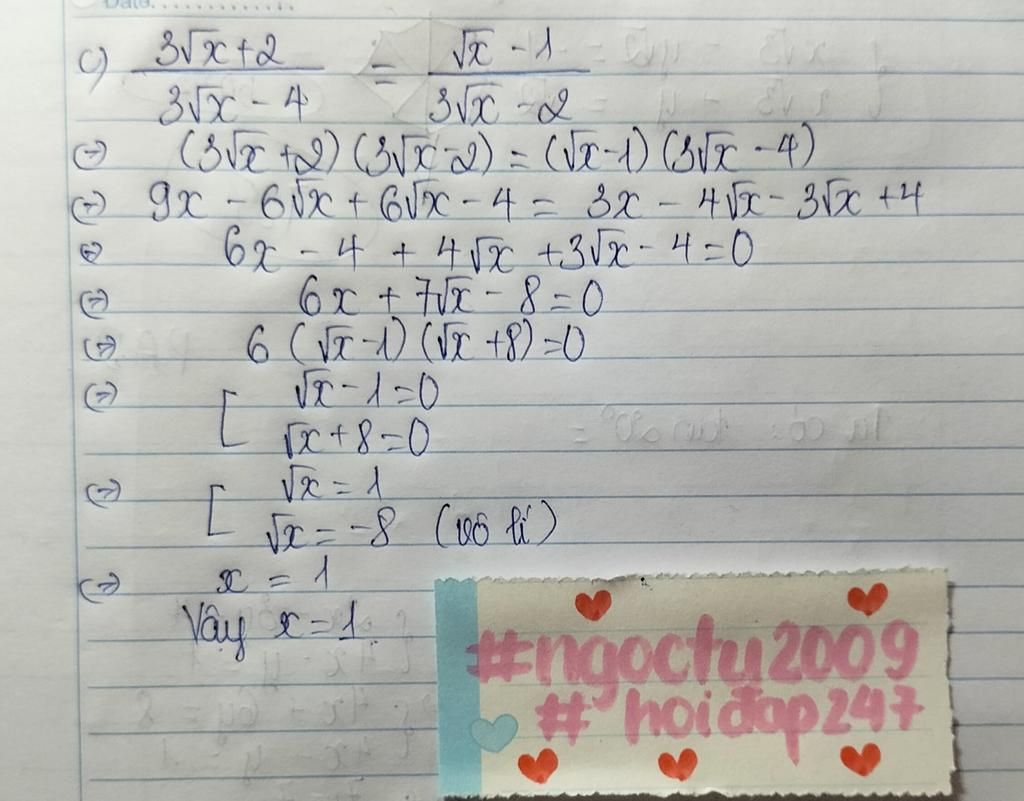 Date.
c) (3√x+2)/(3√x - 4) = (√x - 1)/(3√x - 2)
(=) (3√x +2) (3√x-2) = (√x-1) (3√x - 4)
(=) 9x - 6√x + 6√x - 4 = 3x - 4√x - 3√x + 4
(=) 6x - 4 + 4√x + 3√x - 4 = 0
(=) 6x + 7√x - 8 = 0
(=) 6 (√x-1) (√x +8) = 0
(=) [ √x - 1 = 0
√x + 8 = 0
(=) [ √x = 1
√x = -8 (vô lí)
(=) x = 1
Vậy x = 1.
#ngoctu2009
# hoiđap247